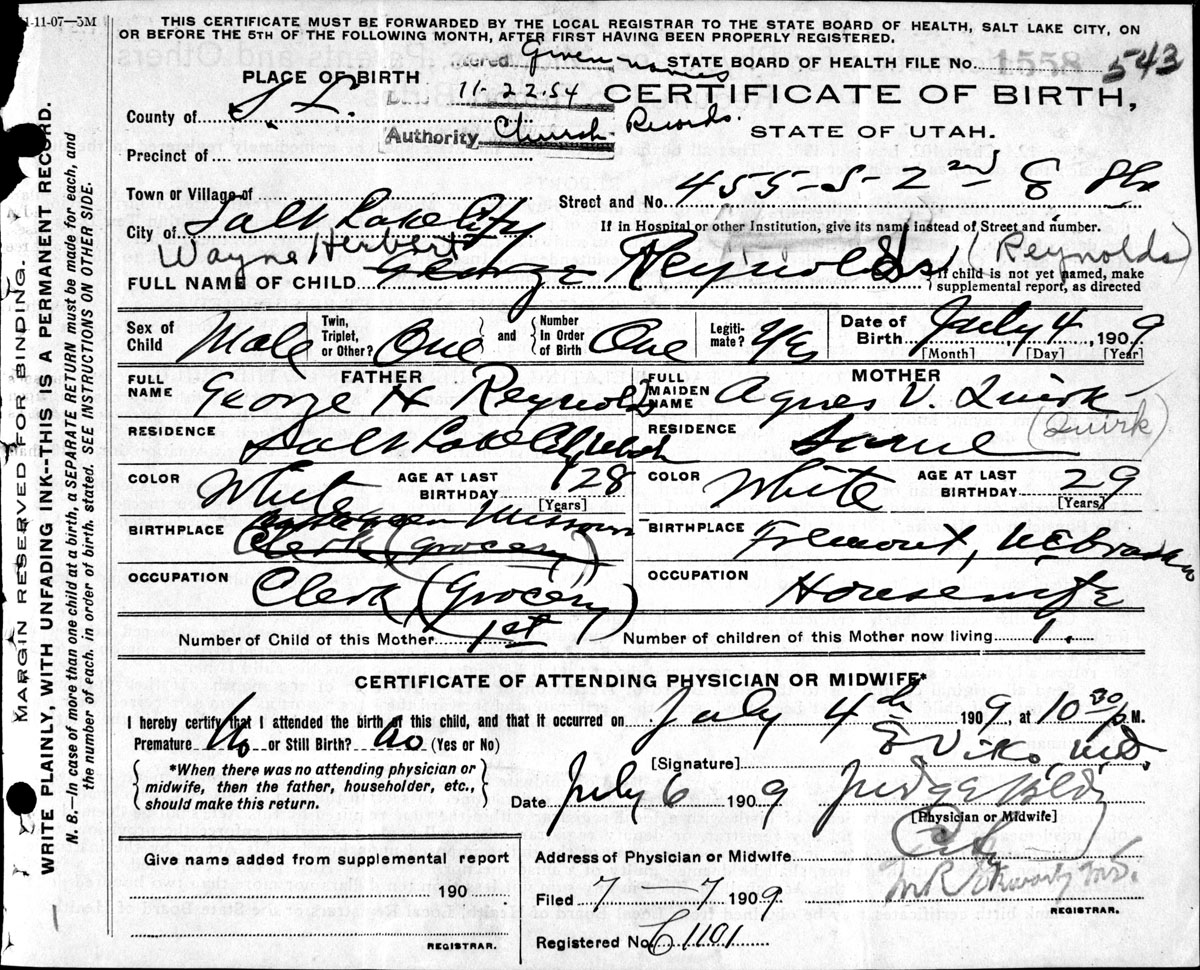 1-11-07—5M
THIS CERTIFICATE MUST BE FORWARDED BY THE LOCAL REGISTRAR TO THE STATE BOARD OF HEALTH, SALT LAKE CITY, ON
OR BEFORE THE 5TH OF THE FOLLOWING MONTH, AFTER FIRST HAVING BEEN PROPERLY REGISTERED.
Given names
STATE BOARD OF HEALTH FILE NO. 1558 543
PLACE OF BIRTH
11-22-54
CERTIFICATE OF BIRTH,
County of S. L.
Authority Church Records.
STATE OF UTAH.
Precinct of
Town or Village of
Street and No. 455-S-2nd E
City of Salt Lake City
If in Hospital or other Institution, give its name instead of Street and number.
Wayne Herbert
(Reynolds)
FULL NAME OF CHILD George Reynolds
If child is not yet named, make
supplemental report, as directed
Sex of Child Male
Twin, Triplet, or Other? One and Number In Order of Birth One
Legitimate? Yes
Date of Birth July 4, 1909
[Month] [Day] [Year]
FATHER
FULL NAME George H Reynolds
RESIDENCE Salt Lake City Utah
COLOR White
AGE AT LAST BIRTHDAY 28
[Years]
BIRTHPLACE Missouri
Clerk (grocery)
OCCUPATION Clerk (Grocery)
MOTHER
FULL MAIDEN NAME Agnes V. Quirk
RESIDENCE Same (Quirk)
COLOR White
AGE AT LAST BIRTHDAY 29
[Years]
BIRTHPLACE Fremont, Nebraska
OCCUPATION Housewife
Number of Child of this Mother 1st
Number of children of this Mother now living 1.
CERTIFICATE OF ATTENDING PHYSICIAN OR MIDWIFE*
I hereby certify that I attended the birth of this child, and that it occurred on July 4th 1909, at 10 30 P.M.
Premature No or Still Birth? No (Yes or No)
*When there was no attending physician or
midwife, then the father, householder, etc.,
should make this return.
[Signature] E Viko, M.D.
Date July 6 1909
Judge Bldg
[Physician or Midwife]
Give name added from supplemental report
190
REGISTRAR.
Address of Physician or Midwife City
Filed 7-7 1909
REGISTRAR.
Registered No. C 1101
MARGIN RESERVED FOR BINDING.
WRITE PLAINLY, WITH UNFADING INK--THIS IS A PERMANENT RECORD.
N. B.—In case of more than one child at a birth, a SEPARATE RETURN must be made for each, and
the number of each, in order of birth, stated. SEE INSTRUCTIONS ON OTHER SIDE.